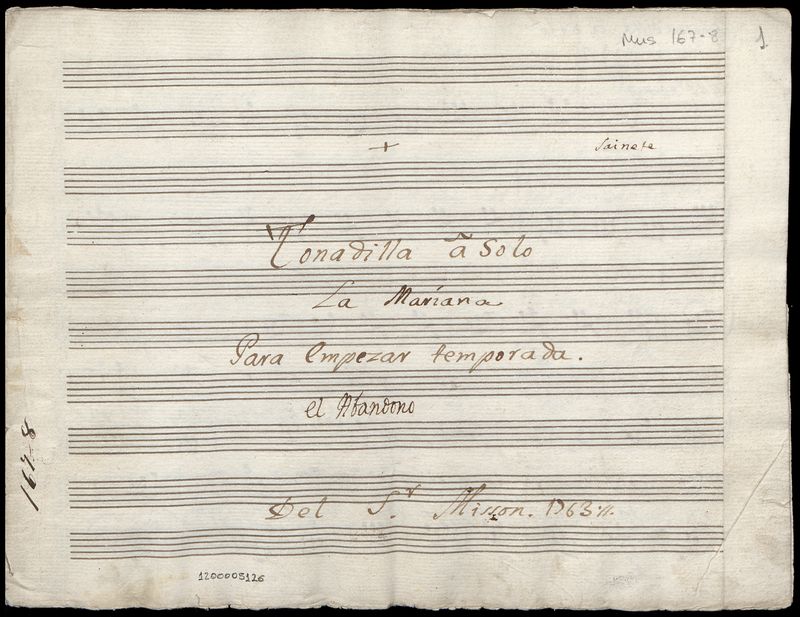 Mus 167-8
1
+
Sainete
Tonadilla a Solo
La Mariana
Para Empezar temporada.
el Abandono
Del S.r Misson. 1763.
167-8
1200005126